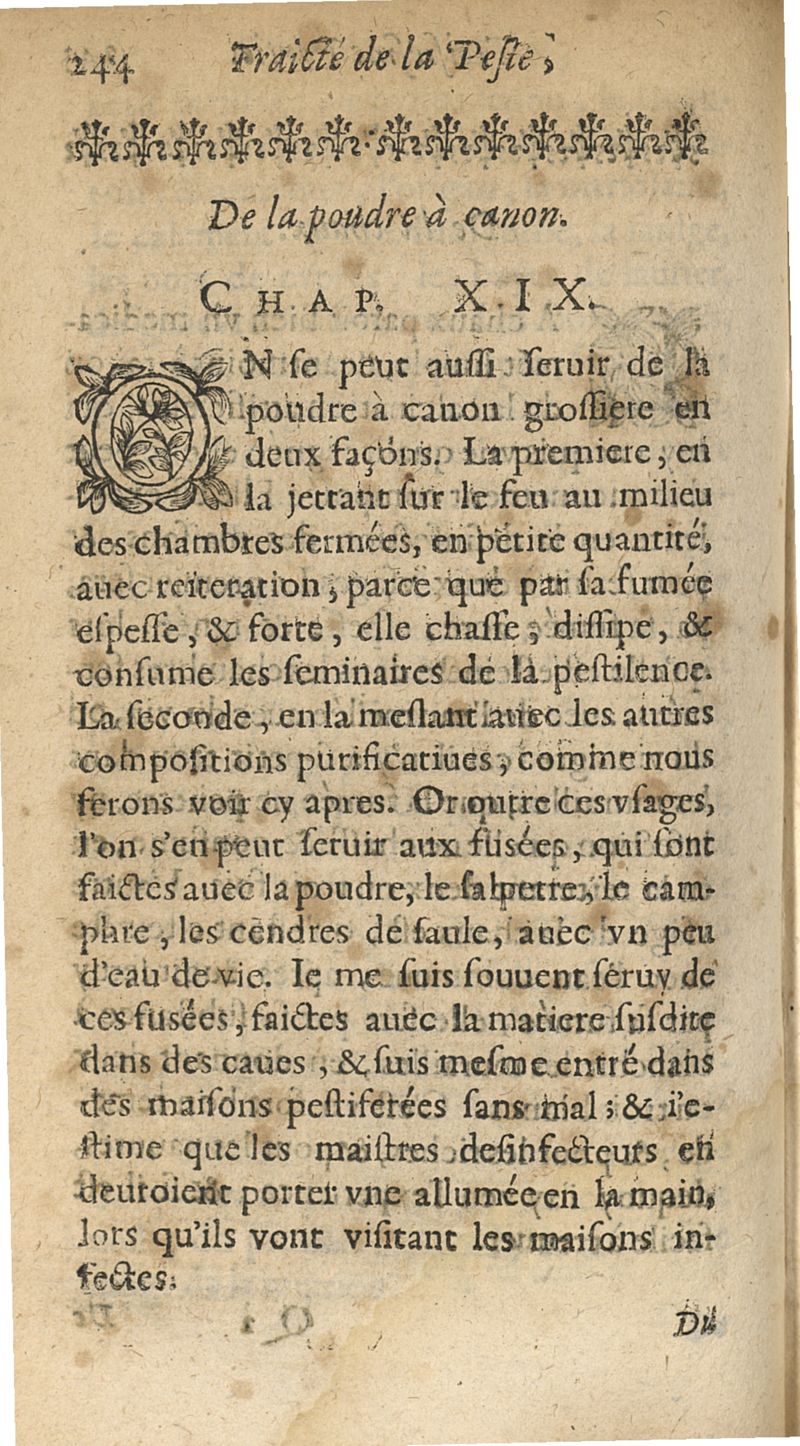 244 Traicté de la Peste,
De la poudre à canon.
CHAP. XIX.
ON se peut aussi seruir de la
poudre à canon grossiere en
deux façons. La premiere, en
la jettant sur le feu au milieu
des chambres fermées, en petite quantité,
auec reiteration, parce que par sa fumée
espesse, & forte, elle chasse, dissipe, &
consume les seminaires de la pestilence.
La seconde, en la meslant auec les autres
compositions purificatiues, comme nous
ferons voir cy apres. Or outre ces vsages,
l'on s'en peut seruir aux fusées, qui sont
faictes auec la poudre, le salpetre, le cam-
phre, les cendres de saule, auec vn peu
d'eau de vie. Ie me suis souuent seruy de
ces fusées, faictes auec la matiere susdite
dans des caues, & suis mesme entré dans
des maisons pestiferées sans mal; & i'e-
stime que les maistres desinfecteurs en
deuroient porter vne allumée en la main,
lors qu'ils vont visitant les maisons in-
fectes.
Du